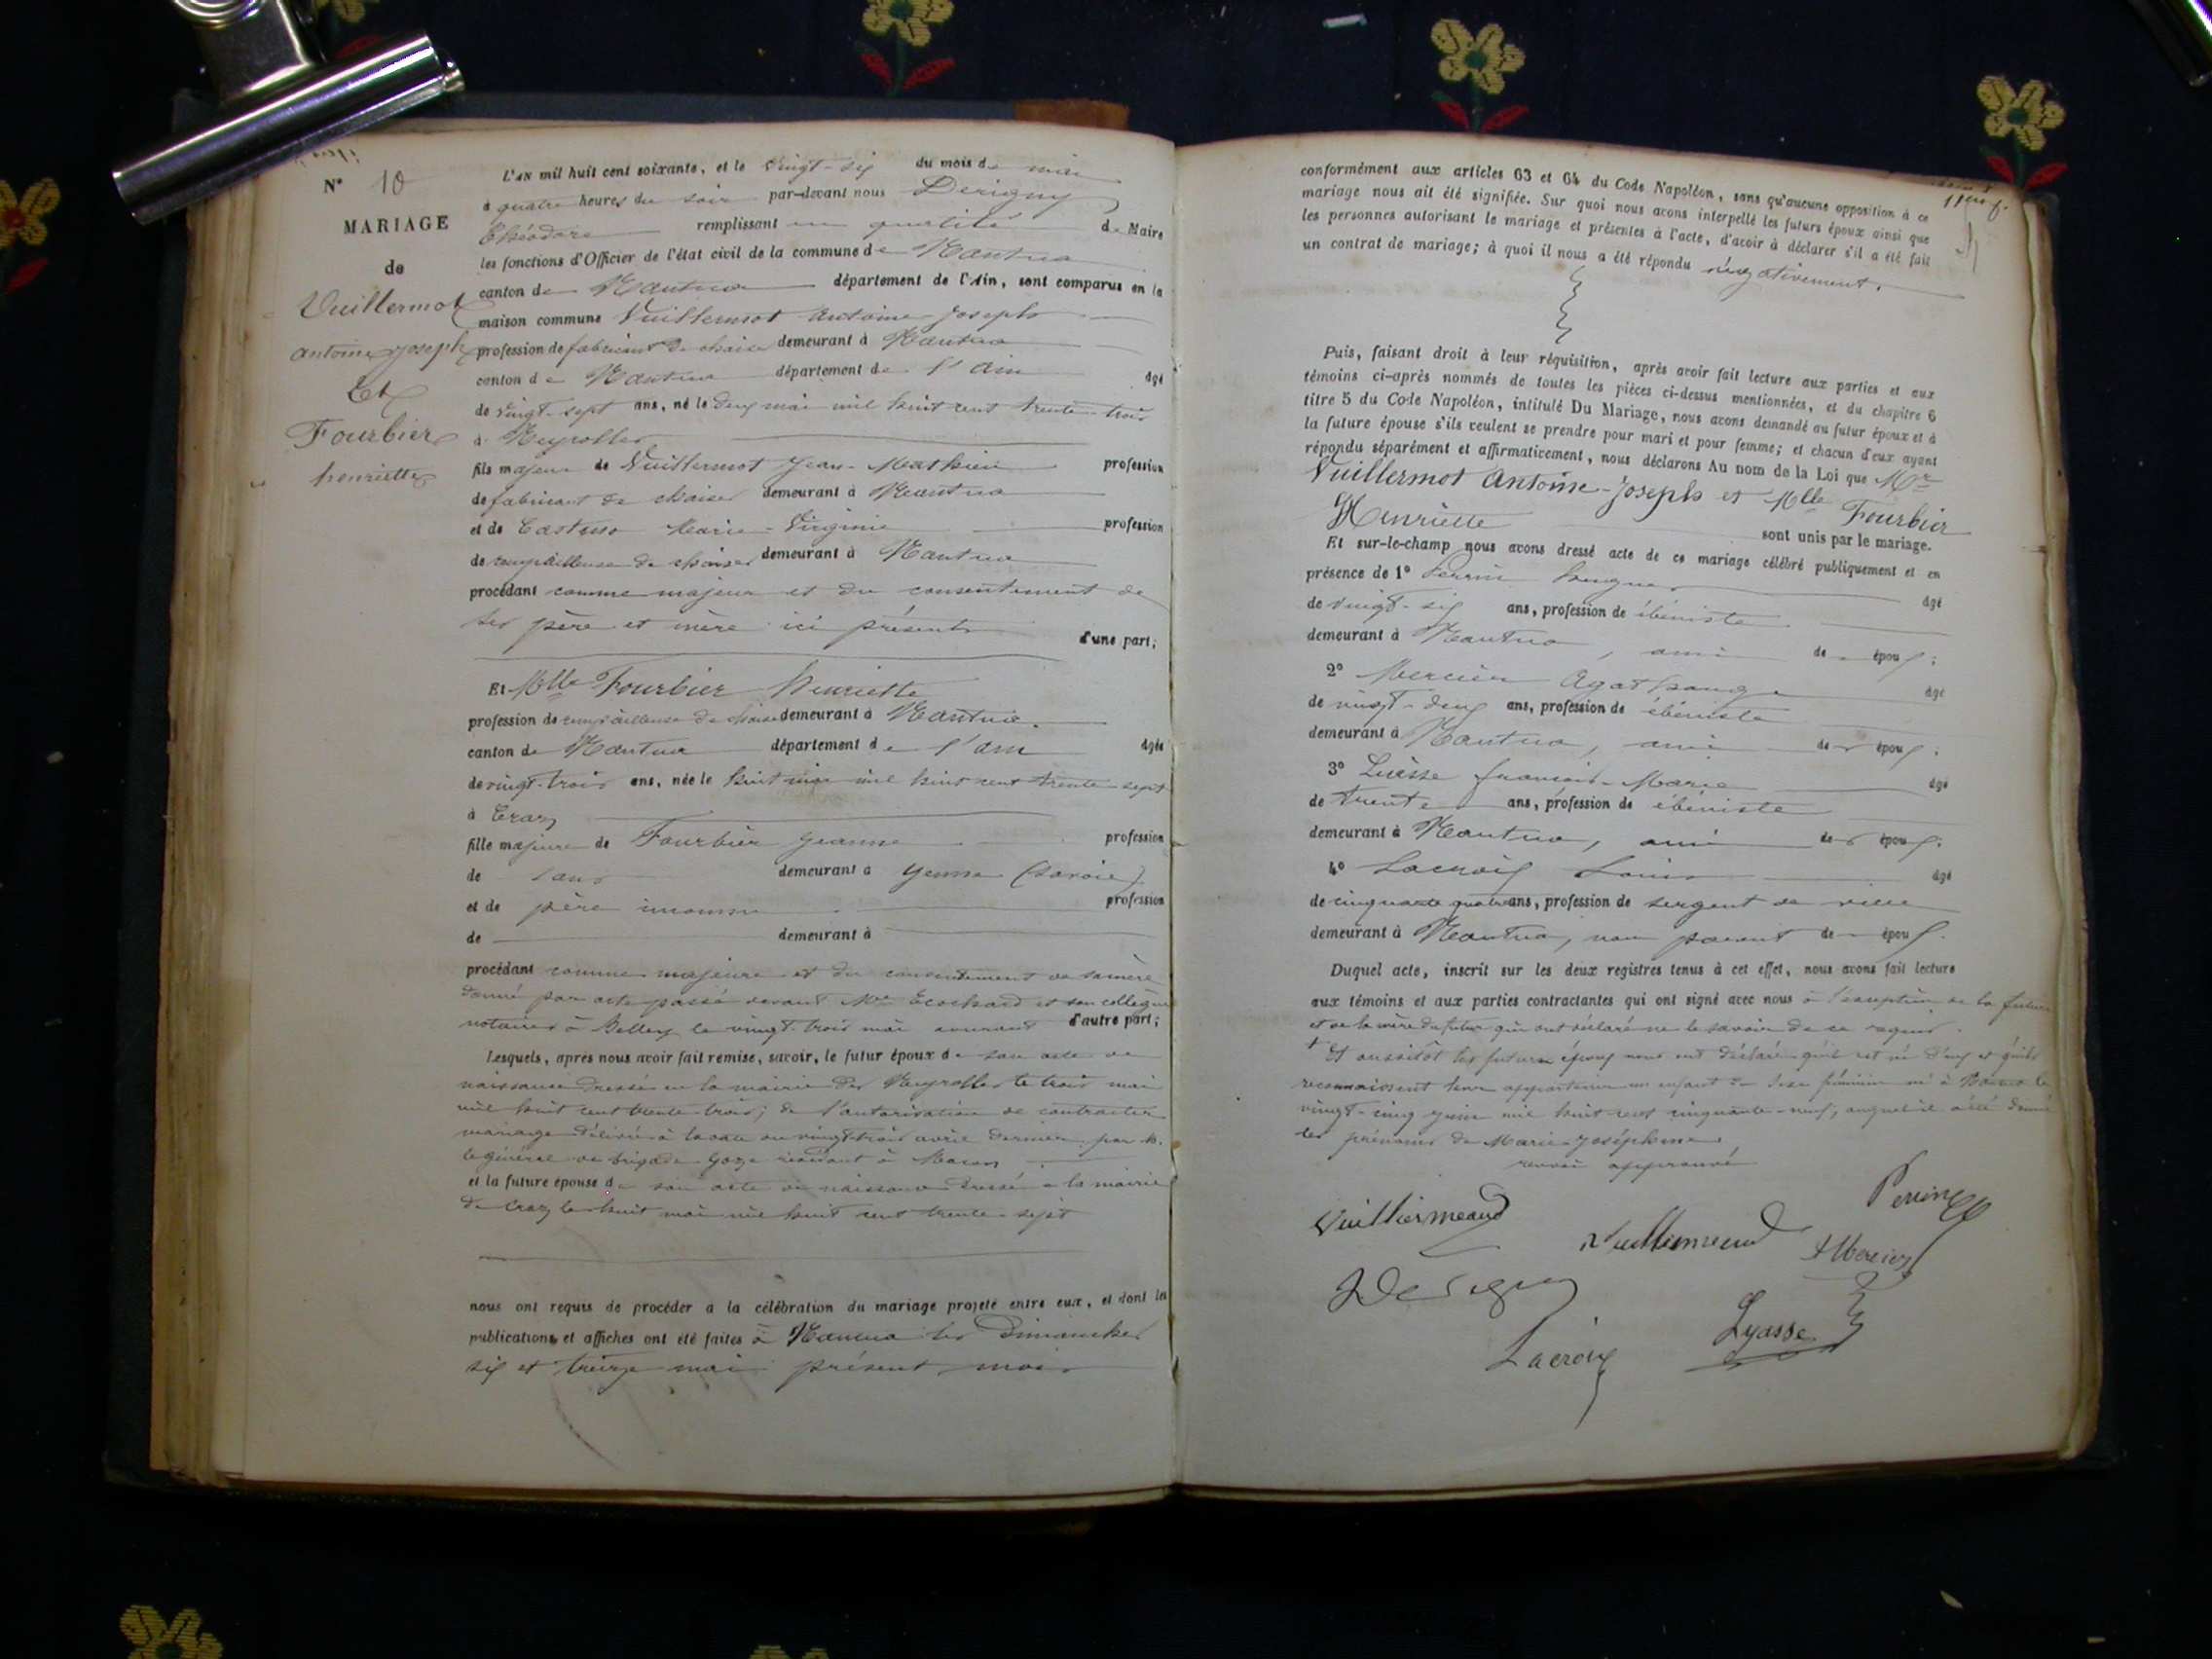 N° 10
MARIAGE
de
Vuillermot
antoine joseph
Et
Fourbier
henriette
L'AN mil huit cent soixante, et le vingt-six du mois de mai
à quatre heures du soir par-devant nous Derigny
théodore remplissant en qualité de Maire
les fonctions d'Officier de l'état civil de la commune de Nantua
canton de Nantua département de l'Ain, sont comparus en la
maison commune Vuillermot antoine joseph
profession de fabricant de chaises demeurant à Nantua
canton de Nantua département de l'ain âgé
de vingt-sept ans, né le deux mai mil huit cent trente-trois
à Neyrolles
fils majeur de Vuillermot jean-Mathieu profession
de fabricant de chaises demeurant à Nantua
et de Marie-Virginie profession
de rempailleuse de chaises demeurant à Nantua
procédant comme majeur et du consentement de
ses père et mère ici présents d'une part;
Et Mlle Fourbier henriette
profession de rempailleuse de chaises demeurant à Nantua
canton de Nantua département de l'ain âgée
de vingt-trois ans, née le huit mai mil huit cent trente-sept
à Craz
fille majeure de Fourbier jeanne profession
de sans demeurant à yenne (Savoie)
et de père inconnu profession
de demeurant à
procédant comme majeure et du consentement de sa mère
donné par acte passé devant Me Ecochard et son collègue
notaires à Belley le vingt-trois mai courant d'autre part;
Lesquels, après nous avoir fait remise, savoir, le futur époux de son acte de
naissance dressé en la mairie des Neyrolles le trois mai
mil huit cent trente-trois; de l'autorisation de contracter
mariage délivrée à la date du vingt-trois avril dernier par M.
le général de brigade résidant à Macon
et la future épouse de son acte de naissance dressé à la mairie
de Craz le huit mai mil huit cent trente-sept
nous ont requis de procéder à la célébration du mariage projeté entre eux, et dont les
publications et affiches ont été faites à Nantua les Dimanches
six et treize mai présent mois
conformément aux articles 63 et 64 du Code Napoléon, sans qu'aucune opposition à ce
mariage nous ait été signifiée. Sur quoi nous avons interpellé les futurs époux ainsi que
les personnes autorisant le mariage et présentes à l'acte, d'avoir à déclarer s'il a été fait
un contrat de mariage; à quoi il nous a été répondu négativement.
Puis, faisant droit à leur réquisition, après avoir fait lecture aux parties et aux
témoins ci-après nommés de toutes les pièces ci-dessus mentionnées, et du chapitre 6
titre 5 du Code Napoléon, intitulé Du Mariage, nous avons demandé au futur époux et à
la future épouse s'ils veulent se prendre pour mari et pour femme; et chacun d'eux ayant
répondu séparément et affirmativement, nous déclarons Au nom de la Loi que Mr
Vuillermot Antoine-Joseph et Mlle Fourbier
Henriette sont unis par le mariage.
Et sur-le-champ nous avons dressé acte de ce mariage célébré publiquement et en
présence de 1° Perrin hugues âgé
de vingt-six ans, profession de ébéniste
demeurant à Nantua, ami des époux;
2° Mercier Agathange âgé
de vingt-deux ans, profession de ébéniste
demeurant à Nantua, ami des époux;
3° françois-Marie âgé
de trente ans, profession de ébéniste
demeurant à Nantua, ami des époux;
4° Lacroix Louis âgé
de cinquante quatre ans, profession de sergent de ville
demeurant à Nantua, non parent des époux.
Duquel acte, inscrit sur les deux registres tenus à cet effet, nous avons fait lecture
aux témoins et aux parties contractantes qui ont signé avec nous à l'exception de la future
et de la mère du futur qui ont déclaré ne le savoir de ce requis.
+ Et aussitôt les futurs époux nous ont déclaré qu'il est né d'eux et qu'ils
reconnaissent leur appartenir un enfant du sexe féminin né à le
vingt-cinq juin mil huit cent cinquante-neuf, auquel il a été donné
les prénoms de Marie-joséphine.
renvoi approuvé
Vuilliermeaud
Vuillermeaud
Perrin
Mercier
Derigny
Lacroix
Lyasse